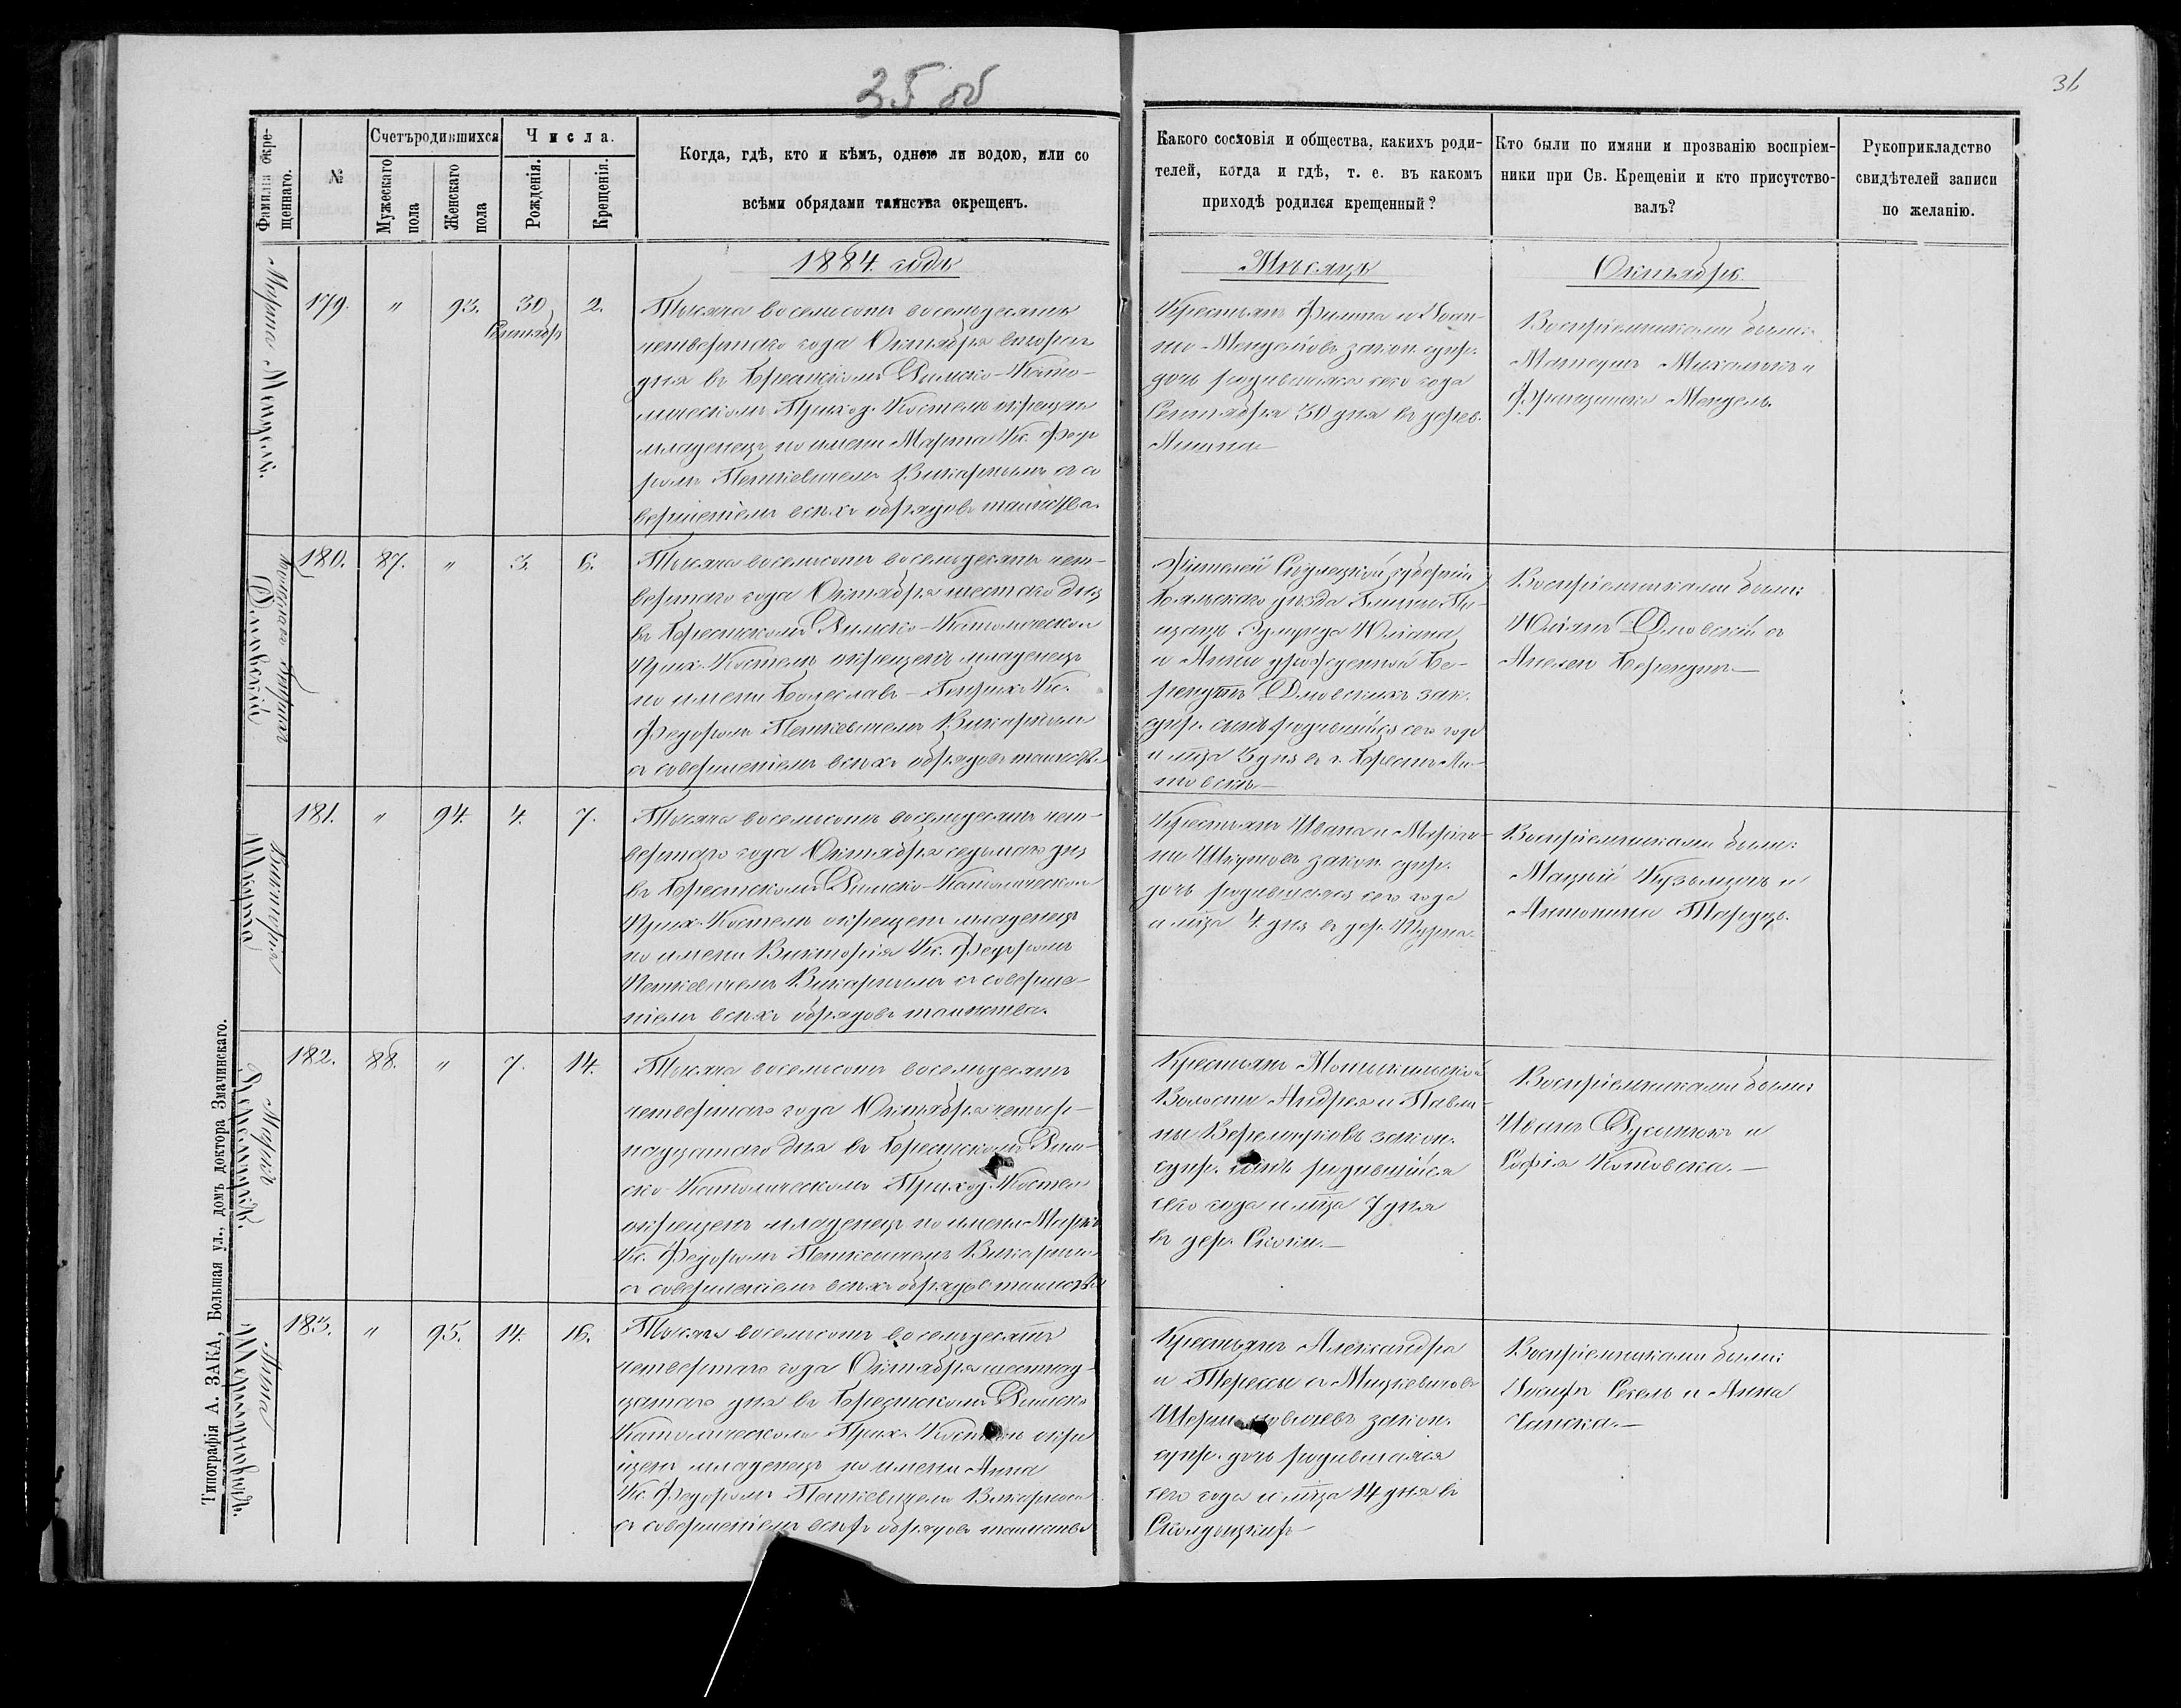 35 об
36
Фамилія окре-
щеннаго.
№
Счетъ родившихся
Мужескаго
пола
Женскаго
пола
Числа.
Рожденія.
Крещенія.
Когда, гдѣ, кто и кѣмъ, одною ли водою, или со
всѣми обрядами таинства окрещенъ.
Какого сословія и общества, какихъ роди-
телей, когда и гдѣ, т. е. въ какомъ
приходѣ родился крещенный?
Кто были по имяни и прозванію воспріем-
ники при Св. Крещеніи и кто присутство-
валъ?
Рукоприкладство
свидѣтелей записи
по желанію.
1884 годъ
Мѣсяцъ
Октябрь
Марта Мендель.
179.
"
93.
30
Сентябр
2.
Тысяча восемьсотъ восемьдесятъ
четвертаго года Октября втораго
дня въ Брестскомъ Римско-Като-
лическомъ Приход. Костелѣ окрещенъ
младенецъ по имени Марта Кс. Федо
ромъ Петкевичемъ Викарнымъ съ со
вершеніемъ всѣхъ обрядовъ таинства.
Крестьянъ Филипа и Іоан-
ны Менделовъ закон. супр.
дочь родившаяся сего года
Сентября 30 дня въ дерев.
Воспріемниками были:
Матеушъ Михалюкъ и
Мендель.
Болеславъ Генрихъ
Дмовскій
180.
87.
"
3.
6.
Тысяча восемьсотъ восемьдесятъ чет-
вертаго года Октября шестаго дня
въ Брестскомъ Римско-Католическомъ
Прих. Костелѣ окрещенъ младенецъ
по имени Болеславъ-Генрихъ Кс.
Федоромъ Петкевичемъ Викарнымъ
съ совершеніемъ всѣхъ обрядовъ таинства
Жителей Сѣдлецкой губерніи
Бяльскаго уѣзда Гмины
Юліана
и Анны урожденной Бе-
рендтъ Дмовскихъ зак.
супр. сынъ родившійся сего года
и мца 3 дня въ г. Брестъ Ли-
товскъ.—
Воспріемниками были:
Юліанъ Дмовскій съ
Берендтъ.—
Викторія
181.
"
94.
4.
7.
Тысяча восемьсотъ восемьдесятъ чет-
вертаго года Октября седьмаго дня
въ Брестскомъ Римско-Католическомъ
Прих. Костелѣ окрещенъ младенецъ
по имени Викторія Кс. Федоромъ
Петкевичемъ Викарнымъ съ соверше-
ніемъ всѣхъ обрядовъ таинства.
Крестьянъ Ивана и
закон. супр.
дочь родившаяся сего года
и мца 4 дня въ дер. Турна.
Воспріемниками были:
Мацѣй Кузьмичъ и
Антонина
Маркъ
182.
88.
"
7.
14.
Тысяча восемьсотъ восемьдесятъ
четвертаго года Октября четыр-
надцатаго дня въ Брестскомъ Рим-
ско-Католическомъ Приход. Костелѣ
окрещенъ младенецъ по имени Маркъ
Кс. Федоромъ Петкевичемъ Викарнымъ
съ совершеніемъ всѣхъ обрядовъ таинства
Крестьянъ Мотыкальской
Волости Андрея и Павли-
ны закон.
супр. сынъ родившійся
сего года и мца 7 дня
въ дер. Скоки.—
Воспріемниками были:
Иванъ Русинюкъ и
Софія Котовска.—
Анна
183.
"
95.
14.
16.
Тысяча восемьсотъ восемьдесятъ
четвертаго года Октября шестнад-
цатаго дня въ Брестскомъ Римско
Католическомъ Прих. Костелѣ окре
щенъ младенецъ по имени Анна
Кс. Федоромъ Петкевичемъ Викарнымъ
съ совершеніемъ всѣхъ обрядовъ таинства
Крестьянъ Александра
и Терессы съ Мицкевичовъ
закон.
супр. дочь родившаяся
сего года и мца 14 дня въ
Воспріемниками были:
Іосифъ и Анна
Типографія А. ЗАКА, Большая ул., домъ доктора Змачинскаго.